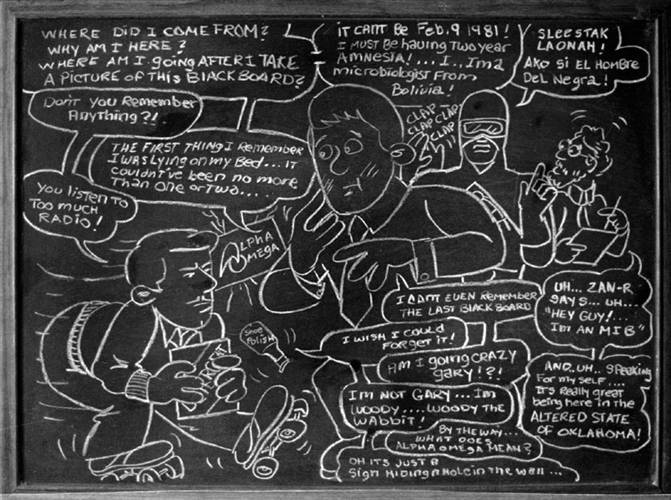 WHERE DID I COME FROM?
WHY AM I HERE?
WHERE AM I going AFTER I TAKE
A PICTURE OF THIS BLACKBOARD?
iT CAN'T BE Feb. 9 1981!
I MUST BE having TWO year
AMNESIA!...I..I'm a
microbiologist From
Bolivia!
SLEESTAK
LAONAH!
AKO SI EL HOMBRE
DEL Negra!
Don't you Remember
Anything?!
THE FIRST THING I Remember
I WAS LYING on my Bed...IT
couldn't've been no more
Than one or Two...
CLAP CLAP
CLAP CLAP
CLAP
You LISTEN TO
Too much
RADIO!
ALPHA
OMEGA
Shoe
Polish
I CAN'T EVEN Remember
THE LAST BLACKBOARD
I WISH I COULD
Forget iT!
AM I going CRAZY
gary!?!
I'M NOT GARY...I'm
WOODY....WOODY THE
WABbiT!
BY THE WAY...
WHAT DOES
ALPHA OMEGA MEAN?
OH ITS JUST A
Sign Hiding a Hole in the wall...
UH... ZAN-R
SAYS...UH...
"HEY GUY!....
I'm AN MIB"
AND..UH.. SPEAKING
For my self....
It's Really great
being here in the
ALTERED STATE
OF OKLAHOMA!